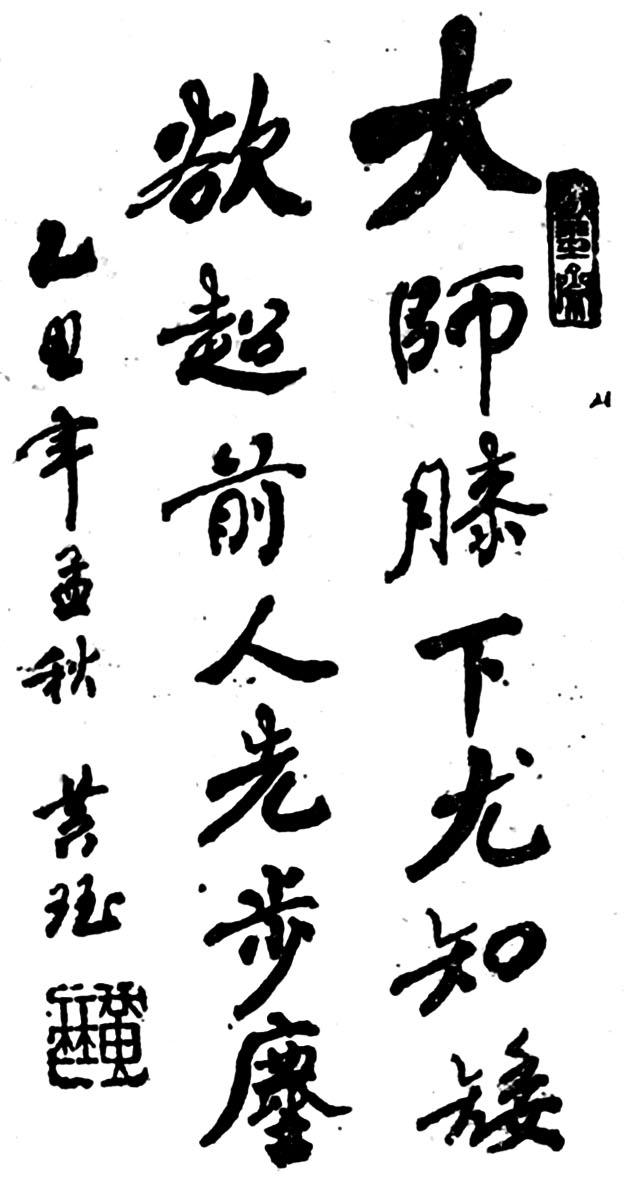 大師膝下尤知矮
欲超前人先步塵
乙丑年孟秋 黄珏